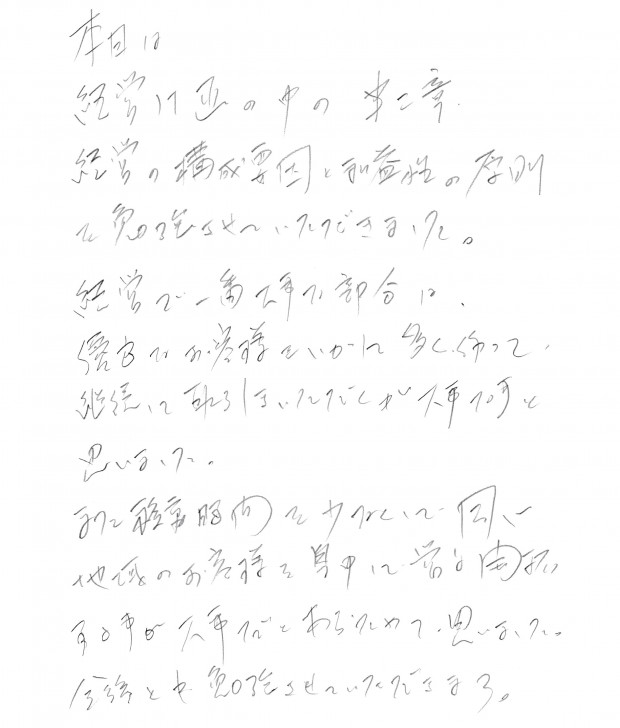 本日は
経営計画の中の 第二章.
経営の構成要因と利益性の原則
を勉強させていただきました。
経営で一番大事な部分は、
優良なお客様をいかに多く作って、
継続して取引をいただくが大事な事と
思いました。
また移動時間を少なくして同じ
地域のお客様を集中して営業開拓
する事が大事だとあらためて思いました。
今後とも勉強させていただきます。